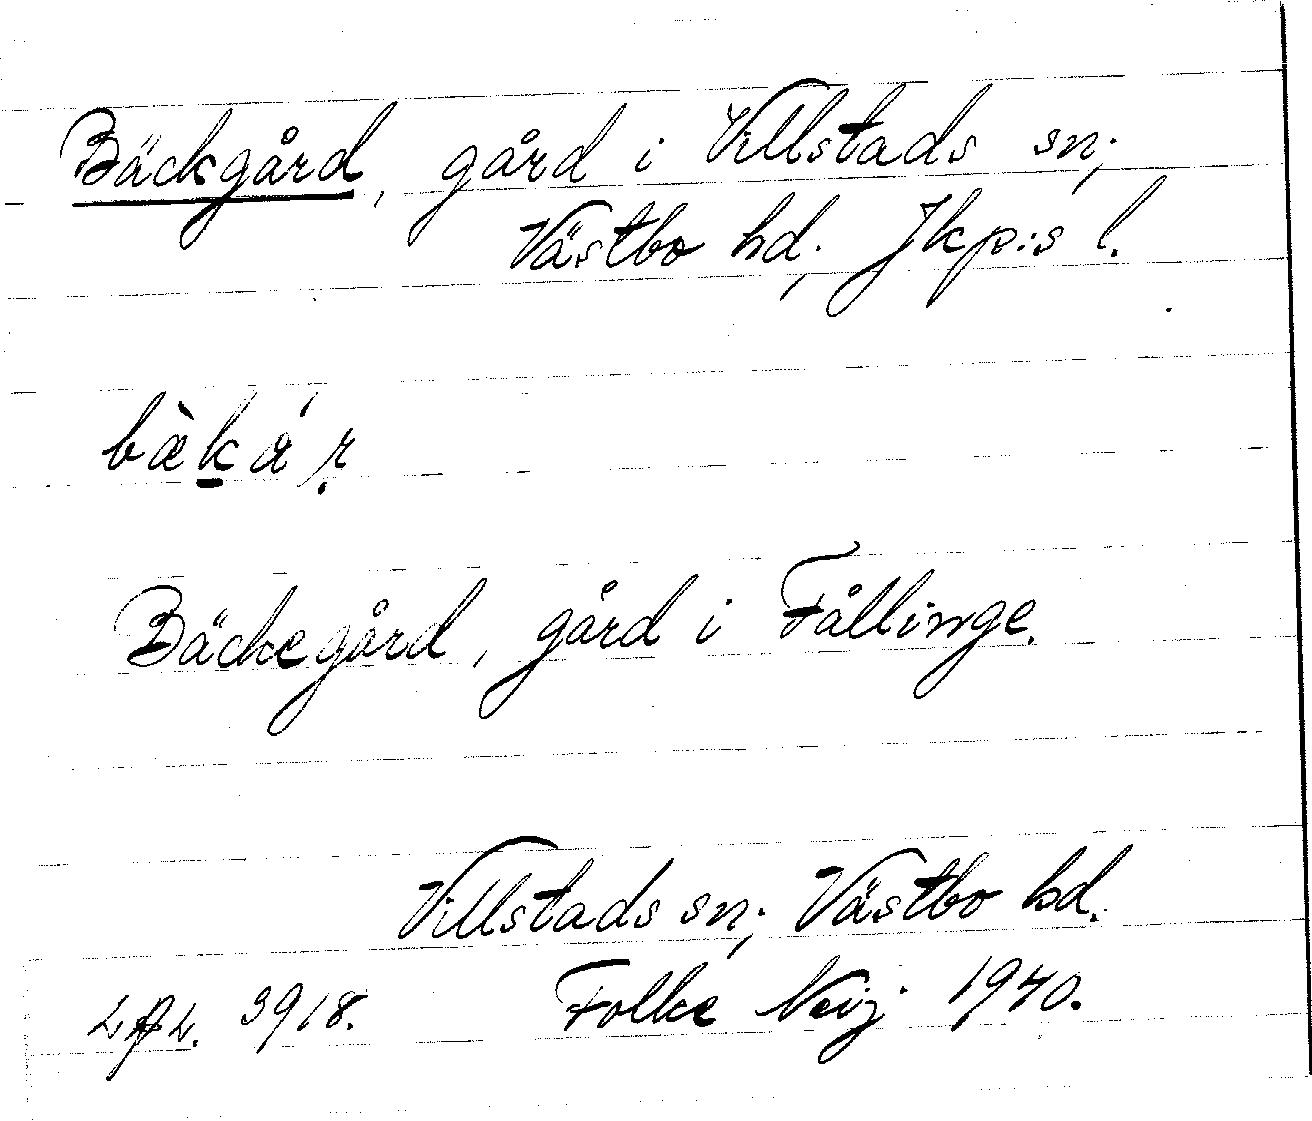 Bäckgård, gård i Villstads sn;
Västbo hd; Jkp:s l.
bæ̀ḵå´ṛ
Bäckegård, gård i Fållinge.
Villstads sn; Västbo hd.
3918. Folke Neij 1940.